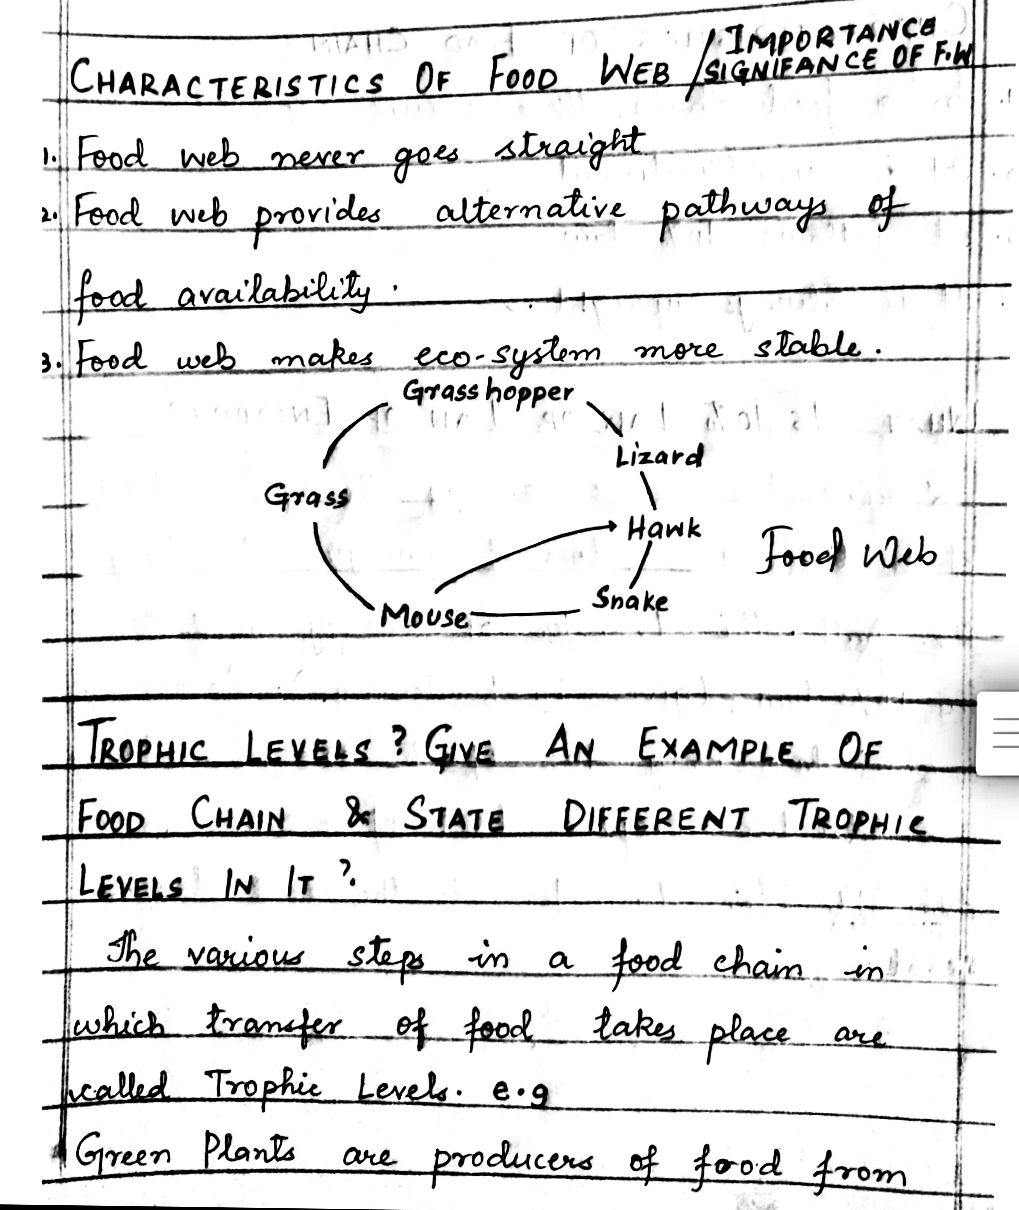 CHARACTERISTICS OF FOOD WEB / IMPORTANCE
SIGNIFANCE OF F.W
1. Food web never goes straight
2. Food web provides alternative pathways of
food availability.
3. Food web makes eco-system more stable.
Grasshopper
Lizard
Grass
Hawk
Food Web
Snake
Mouse
TROPHIC LEVELS? GIVE AN EXAMPLE OF
FOOD CHAIN & STATE DIFFERENT TROPHIC
LEVELS IN IT?
The various steps in a food chain in
which transfer of food takes place are
called Trophic Levels. e.g
Green Plants are producers of food from